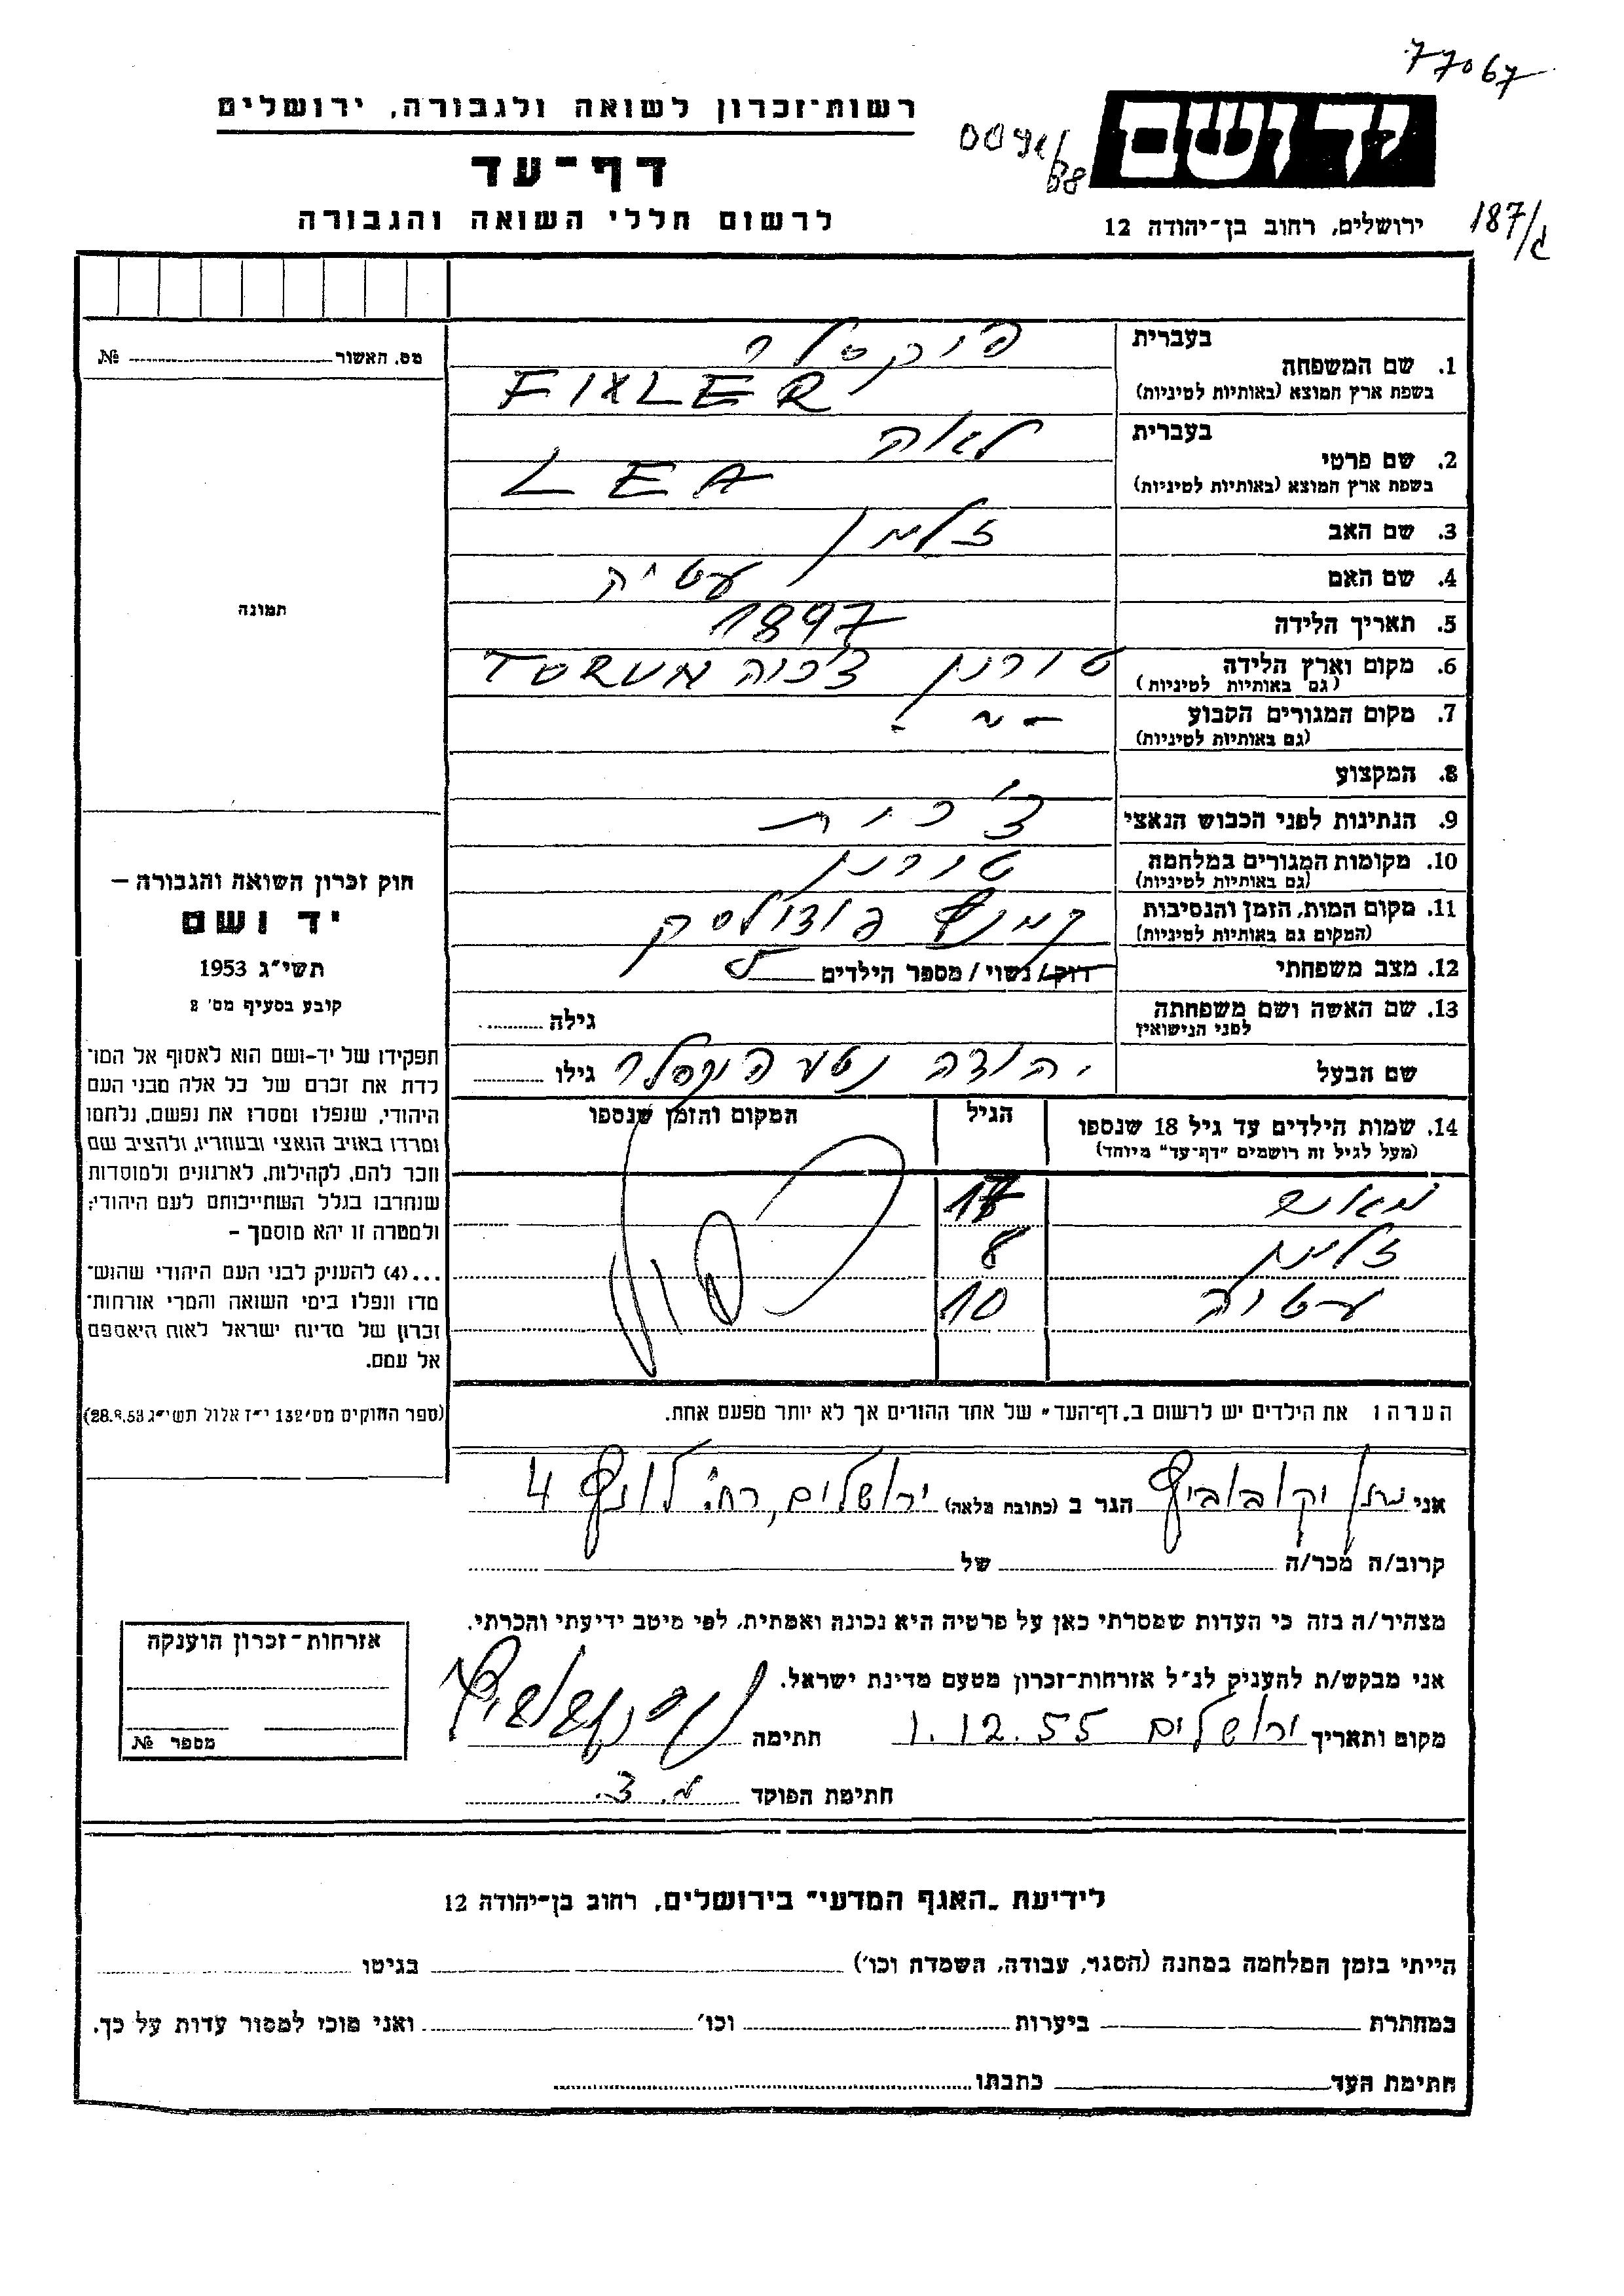 77067
רשות-זכרון לשואה ולגבורה, ירושלים
ידושם
דף-עד
לרשום חללי השואה והגבורה
ירושלים, רחוב בן-יהודה 12
187/ג
מס. האשור № 
תמונה
בעברית
1. שם המשפחה
פיקסלר
בשפת ארץ המוצא (באותיות לטיניות)
FIXLER
בעברית
2. שם פרטי
לאה
בשפת ארץ המוצא (באותיות לטיניות)
LEA
3. שם האב זלמן
4. שם האם עטיה
5. תאריך הלידה 1897
6. מקום וארץ הלידה טורון צ'כיה TORUN
(גם באותיות לטיניות)
7. מקום המגורים הקבוע - " -
(גם באותיות לטיניות)
8. המקצוע
9. הנתינות לפני הכבוש הנאצי צ'כית
10. מקומות המגורים במלחמה טורון
(גם באותיות לטיניות)
11. מקום המות, הזמן והנסיבות קמנץ פודולסק
(המקום גם באותיות לטיניות)
12. מצב משפחתי רוק/ נשוי / מספר הילדים 5
13. שם האשה ושם משפחתה גילה
לפני הנישואין
שם הבעל יהודה נטע פיקסלר גילו
14. שמות הילדים עד גיל 18 שנספו הגיל המקום והזמן שנספו
(מעל לגיל זה רושמים "דף-עד" מיוחד)
17
8
עטיה 10
הערה: את הילדים יש לרשום ב"דף-העד" של אחד ההורים אך לא יותר מפעם אחת.
חוק זכרון השואה והגבורה –
יד ושם
תשי"ג 1953
קובע בסעיף מס' 2
תפקידו של יד-ושם הוא לאסוף אל המו־
לדת את זכרם של כל אלה מבני העם
היהודי, שנפלו ומסרו את נפשם, נלחמו
ומרדו באויב הנאצי ובעוזריו, ולהציב שם
וזכר להם, לקהילות, לארגונים ולמוסדות
שנחרבו בגלל השתייכותם לעם היהודי;
ולמטרה זו יהא מוסמך –
...(4) להעניק לבני העם היהודי שהוש־
מדו ונפלו בימי השואה והמרי אזרחות־
זכרון של מדינת ישראל לאות היאספם
אל עמם.
(ספר החוקים מס' 132 י"ז אלול תשי"ג 28.8.53)
אני נתן יקובוביץ הגר ב (כתובת מלאה) ירושלים, רח' לונץ 4
קרוב/ה מכר/ה של
מצהיר/ה בזה כי העדות שמסרתי כאן על פרטיה היא נכונה ואמתית, לפי מיטב ידיעתי והכרתי.
אני מבקש/ת להעניק לנ"ל אזרחות-זכרון מטעם מדינת ישראל.
מקום ותאריך ירושלים 1.12.55 חתימה
חתימת הפוקד מ. צ.
אזרחות-זכרון הוענקה
מספר №
לידיעת "האגף המדעי" בירושלים, רחוב בן-יהודה 12
הייתי בזמן המלחמה במחנה (הסגר, עבודה, השמדה וכו') בגיטו
במחתרת ביערות וכו' ואני מוכן למסור עדות על כך.
חתימת העד כתבתו